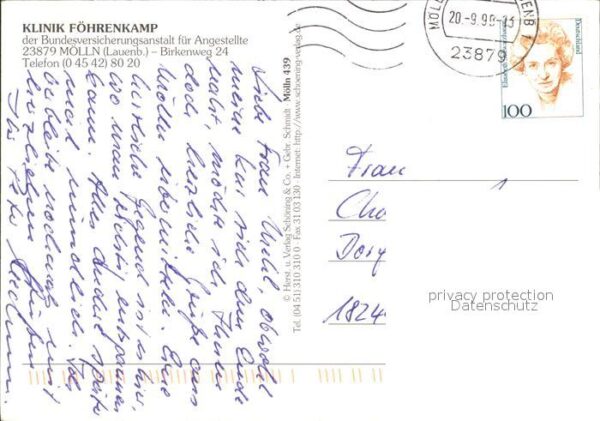 KLINIK FÖHRENKAMP
der Bundesversicherungsanstalt für Angestellte
23879 MÖLLN (Lauenb.) – Birkenweg 24
Telefon (0 45 42) 80 20
Liebe Frau obwohl
meine Kur sich dem Ende
naht, möchte ich Ihnen
doch herzliche Grüße aus
Mölln übermitteln. Eine
herrliche Gegend ist es hier,
wo man sich entspannen
kann. Alles andere später
mal mündlich. Ich
verbleibe nochmals mit
herzlichen Grüßen
Ihre
© Herst. u. Verlag Schöning & Co. + Gebr. Schmidt Mölln 439
Tel. (04 51) 310 310 0 · Fax 31 03 130 · Internet: http://www.schoening-verlag.de
MÖLLN
20.-9.99-13
23879
Deutschland
100
Frau
Cha
Dorf
1824
privacy protection
watermark